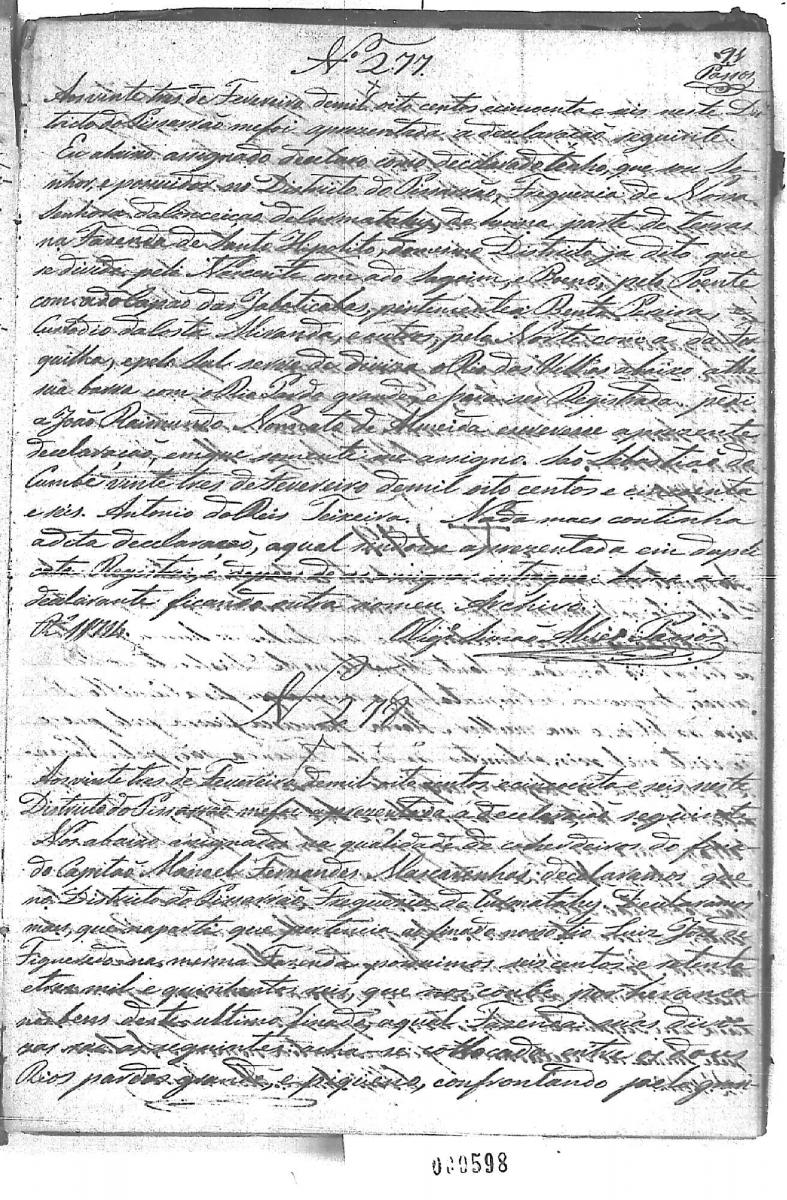 Nº 277.
91
Passos
Aos vinte tres de Fevereiro de mil oito centos e cincoenta e seis neste Dis
tricto do Pissarrão me foi aprezentada a declaração seguinte.
Eu abaixo assignado declaro como declarado tenho, que sou Se-
nhor, e possuidor no Districto do Pissarrão, Freguezia de Nossa
Senhora da Conceição de Curmatahy, de huma parte de terras
na Fazenda de Santo Hipolito, do mesmo Districto ja dito que
se divide pela Nascente com a do pelo Poente
com a do Capão das Jabuticabas, pertencente a Bento Pereira, e
Custodio da Costa Miranda, e outros, pelo Norte com a da For
quilha, e pelo Sul serve de diviza o Rio das Velhas abaixo athe
sua barra com o Rio Pardo grande, e para ser Registrada pedi
a João Raimundo Nonnato de Almeida escrevesse a prezente
declaração, em que somente me assigno. São Sebastião do
Cumbe, vinte tres de Fevereiro de mil oito centos e cincoenta
e seis. Antonio do Reis Teixeira. Nada mais continha
a dita declaração, a qual sendo me aprezentada em dupli
cata Registrei, e depois de entreguei huma ao
declarante ficando outra no meu Archivo.
O Vigº Passos
Nº 278
Aos vinte tres de Fevereiro de mil oito centos e cincoenta e seis neste
Districto do Pissarrão me foi aprezentada a declaração seguinte
Nos abaixo assignados na qualidade de coherdeiros do fina
do Capitão Manoel Fernandes Mascarenhas, declaramos que
no Districto do Pissarrão, Freguezia de Curmatahy, Declaramos
mais, que na parte que pertencia ao finado nosso tio Luiz José de
Figueredo na mesma Fazenda possuimos seis centos e oitenta
e tres mil e quinhentos reis, que nos coube por herança
nos bens deste ultimo finado, a qual Fazenda suas divi-
zas são as seguintes acha-se collocada entre os dous
Rios pardos grande, e piqueno, confrontando pelo gran-
000598